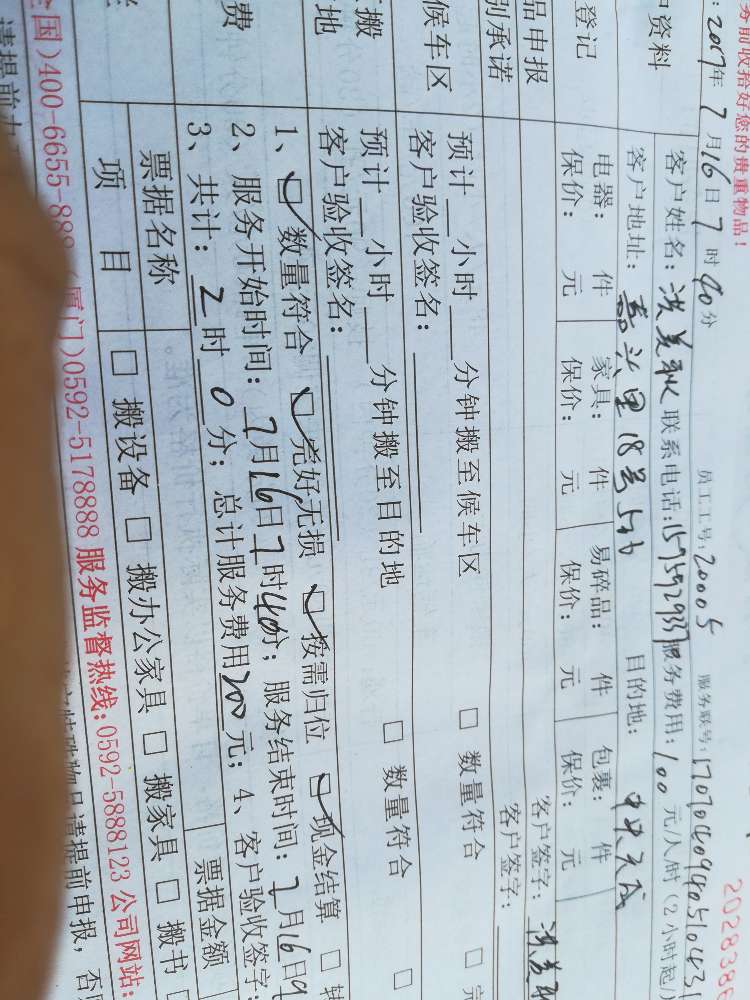 务前收拾好您的贵重物品！
2028386
：2017年7月16日7时40分 员工工号：20005 服务联号：
资料
客户姓名： 联系电话： 服务费用：100元/人/时（2小时起/
客户地址：嘉头里18号 目的地：
登记
电器： 件 家具： 件 易碎品： 件 包裹： 件
保价： 元 保价： 元 保价： 元 保价： 元
品申报
客户签字：
别承诺
客户签字：
候车区
预计 小时 分钟搬至候车区 □ 数量符合 □ 完
客户验收签名：
搬
地
预计 小时 分钟搬至目的地 □ 数量符合 □
客户验收签名：
费
1、☑ 数量符合 ☑ 完好无损 ☑ 按需归位 ☑ 现金结算 □ 转
2、服务开始时间：7月16日7时40分；服务结束时间：7月16日9
3、共计：2时0分；总计服务费用200元；4、客户验收签字：
票据名称 票据金额
项 目 □ 搬设备 □ 搬办公家具 □ 搬家具 □ 搬书
全国）400-6655-888（厦门）0592-5178888 服务监督热线：0592-5888123 公司网站：
请提前申报，否